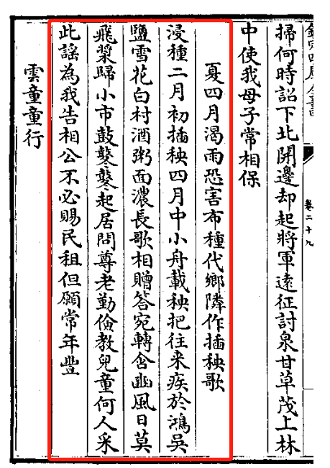 掃何時詔下北開邊却起將軍遠征討泉甘草茂上林
中使我母子常相保
夏四月渴雨恐害布種代鄉隣作插秧歌
浸種二月初插秧四月中小舟載秧把往來疾於鴻吳
鹽雪花白村酒粥面濃長歌相贈答宛轉含豳風日莫
飛槳歸小市鼓鼕鼕起居問尊老勤儉教兒童何人采
此謡為我告相公不必賜民租但願常年豐
雲童童行
卷二十九